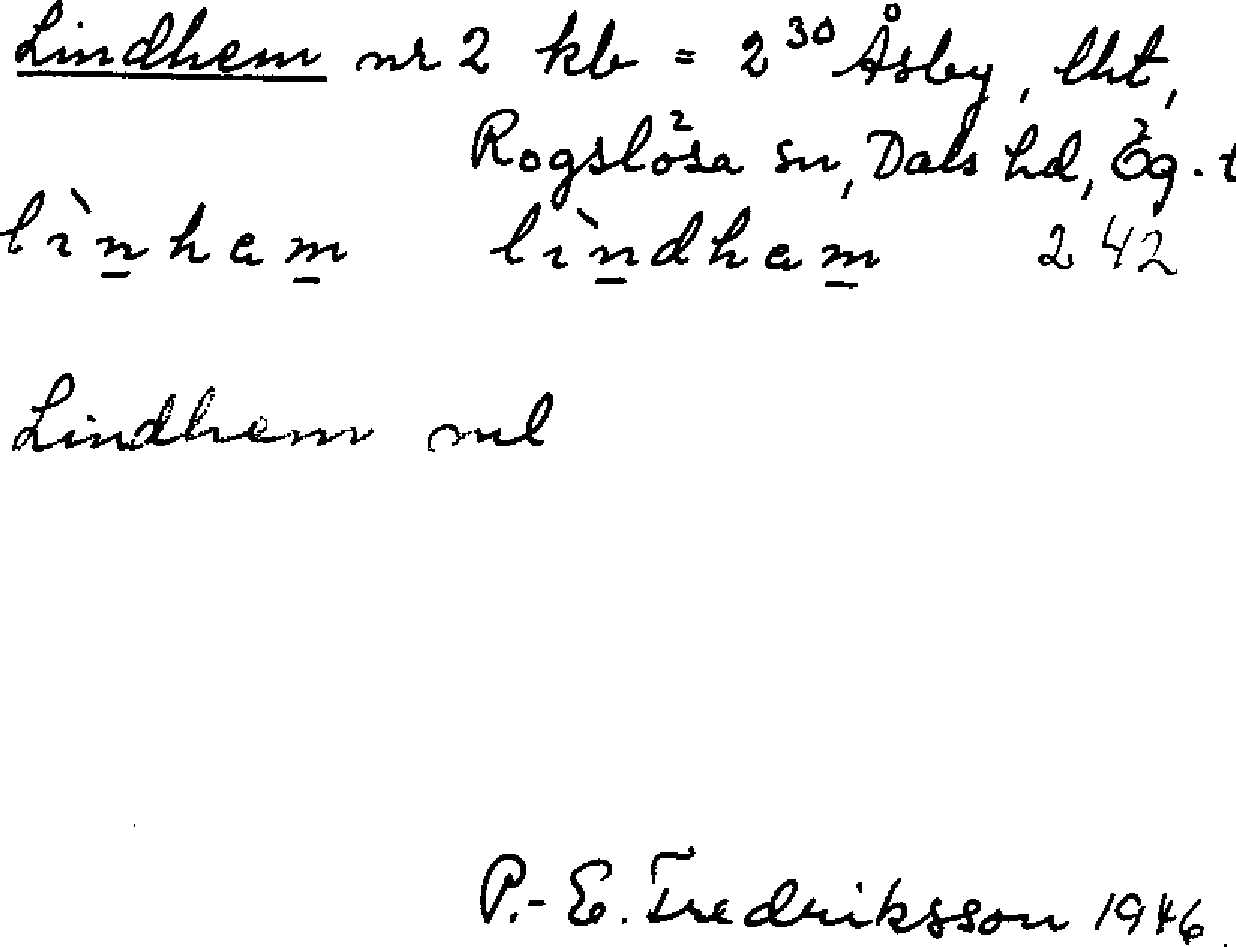 Lindhem nr 2 kb = 2³⁰ Åsby, lht,
Rogslösa sn, Dals hd, Ög. t
lìnhem lìndhem 242
Lindhem ml
P.-E. Fredriksson 1946.